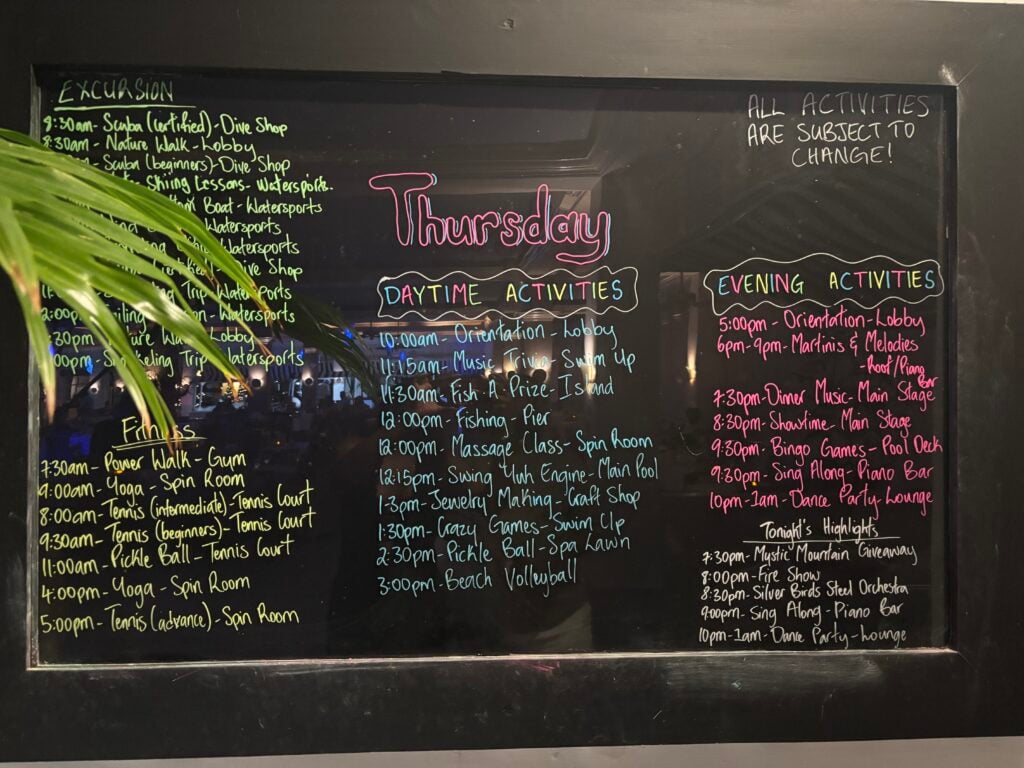 EXCURSION
8:30am - Scuba (certified) - Dive Shop
8:30am - Nature Walk - Lobby
Scuba (beginners) - Dive Shop
Skiing Lessons - Watersports.
Boat - Watersports
Watersports
Watersports
- Dive Shop
Trip - Watersports
- Watersports
Walk - Lobby
Snorkeling Trip - Watersports
Fitness
7:30am - Power Walk - Gym
9:00am - Yoga - Spin Room
8:00am - Tennis (intermediate) - Tennis Court
9:30am - Tennis (beginners) - Tennis Court
11:00am - Pickle Ball - Tennis Court
4:00pm - Yoga - Spin Room
5:00pm - Tennis (advance) - Spin Room
Thursday
DAYTIME ACTIVITIES
10:00am - Orientation - Lobby
11:15am - Music Trivia - Swim Up
11:30am - Fish A Prize - Island
12:00pm - Fishing - Pier
12:00pm - Massage Class - Spin Room
12:15pm - Swing Yuh Engine - Main Pool
1-3pm - Jewelry Making - Craft Shop
1:30pm - Crazy Games - Swim Up
2:30pm - Pickle Ball - Spa Lawn
3:00pm - Beach Volleyball
ALL ACTIVITIES
ARE SUBJECT TO
CHANGE!
EVENING ACTIVITIES
5:00pm - Orientation - Lobby
6pm-9pm - Martinis & Melodies
- Roof/Piano
Bar
7:30pm - Dinner Music - Main Stage
8:30pm - Showtime - Main Stage
9:30pm - Bingo Games - Pool Deck
9:30pm - Sing Along - Piano Bar
10pm-1am - Dance Party - Lounge
Tonight's Highlights
7:30pm - Mystic Mountain Giveaway
8:00pm - Fire Show
8:30pm - Silver Birds Steel Orchestra
9:00pm - Sing Along - Piano Bar
10pm-1am - Dance Party - Lounge